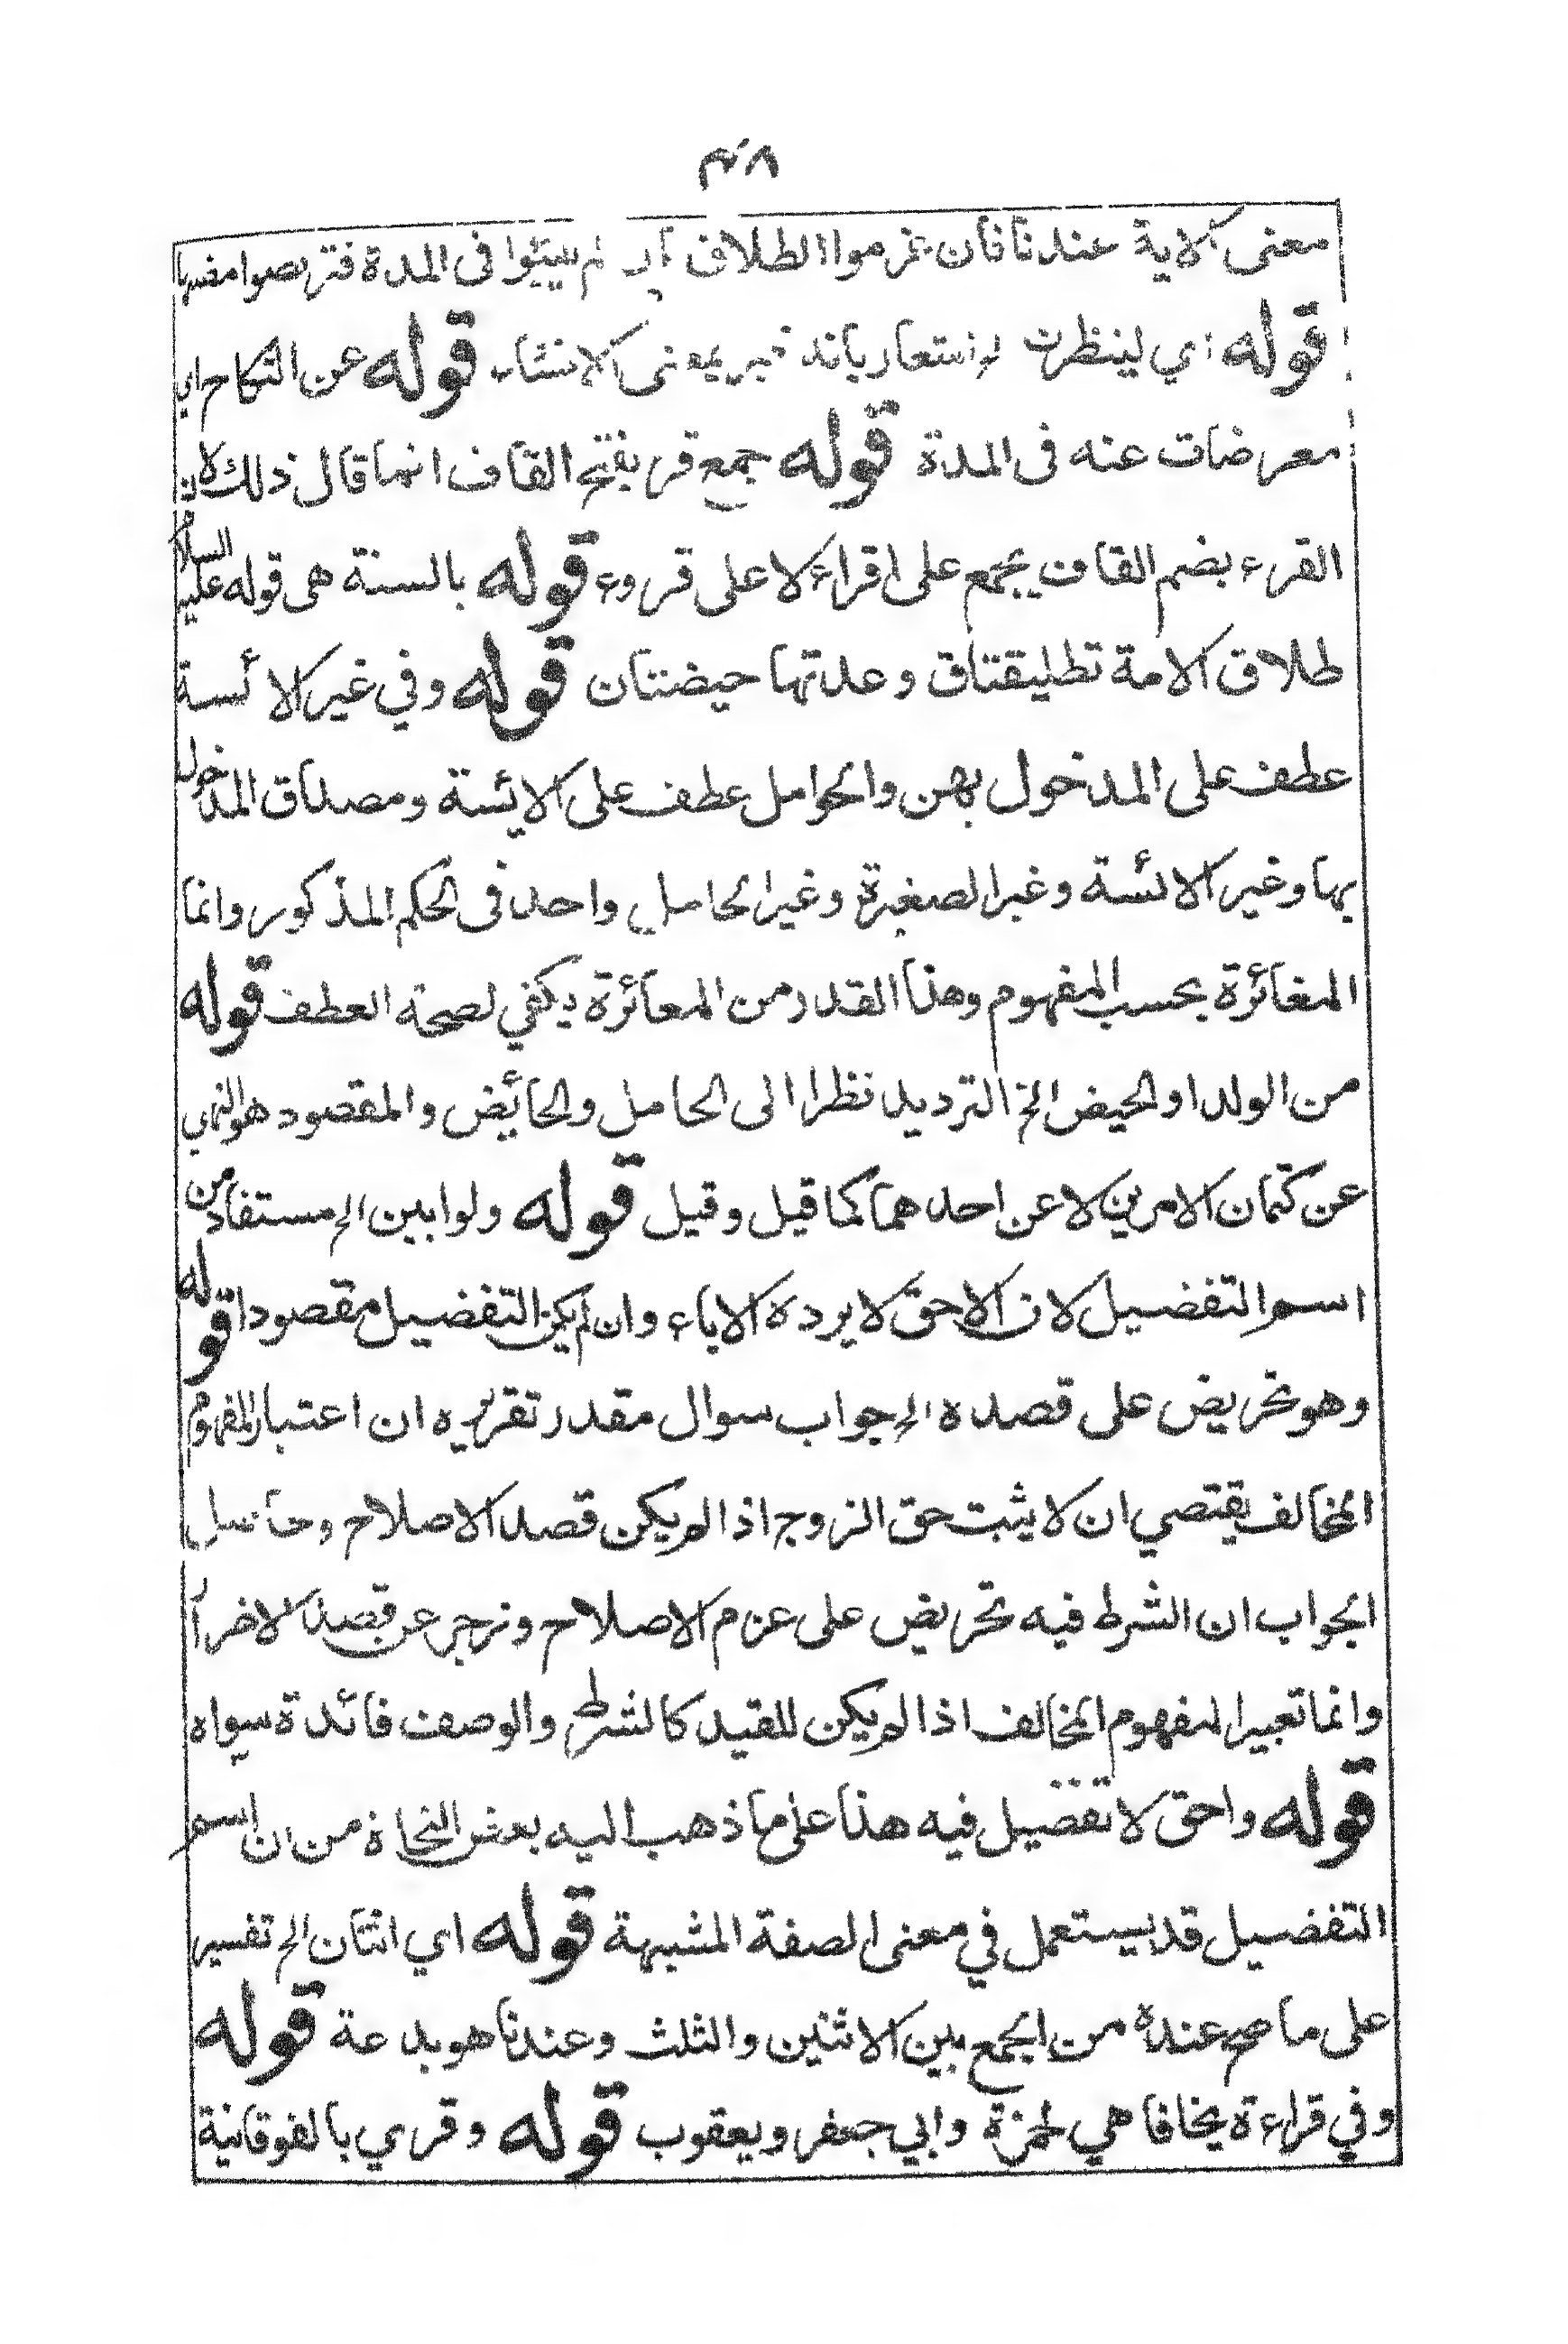 ٤٠٨
معنى الاية عندنا فان عزموا الطلاق لم يفيئوا فى المدة فتربصوا مضيها
قوله اي لينظرن اشعار بانه خبر بمعنى الانشاء قوله عن النكاح اي
معرضات عنه فى المدة قوله جمع قرء بفتح القاف انما قال ذلك لان
القرء بضم القاف يجمع على اقراء لا على قروء قوله بالسنة هى قوله عليه السلام
طلاق الامة تطليقتاق وعدتها حيضتان قوله وفي غير الائسة
عطف على المدخول بهن والحوامل عطف على الايسة ومصداق المدخول
بها وغير الائسة وغير الصغيرة وغير الحامل واحد فى الحكم المذكور وانما
المغائرة بحسب المفهوم وهذا القدر من المغائرة يكفي لصحة العطف قوله
من الولد او الحيض الخ الترديد نظرا الى الحامل والحائض والمقصود هو النهي
عن كتمان الامرين لا عن احدهما كما قيل وقيل قوله ولو ابين الخ مستفاد من
اسم التفضيل لان الاحق لا يرده الاباء وان لم يكن التفضيل مقصودا قوله
وهو تحريض على قصده الخ جواب سوال مقدر تقريره ان اعتبار المفهوم
المخالف يقتضي ان لا يثبت حق الزوج اذا لم يكن قصد الاصلاح وحاصل
الجواب ان الشرط فيه تحريض على عزم الاصلاح وزجر عن قصد الاضرار
وانما تعبير المفهوم المخالف اذا لم يكن للقيد كالشرط والوصف فائدة سواه
قوله واحق لا تفضيل فيه هذا على ما ذهب اليه بعض النحاة من ان اسم
التفضيل قد يستعمل في معنى الصفة المشبهة قوله اي اثنتان الخ تفسير
على ما صح عنده من الجمع بين الاثنين والثلث وعندنا هو بدعة قوله
وفي قراءة يخافا هي لحمزة وابي جعفر ويعقوب قوله وقري بالفوقانية